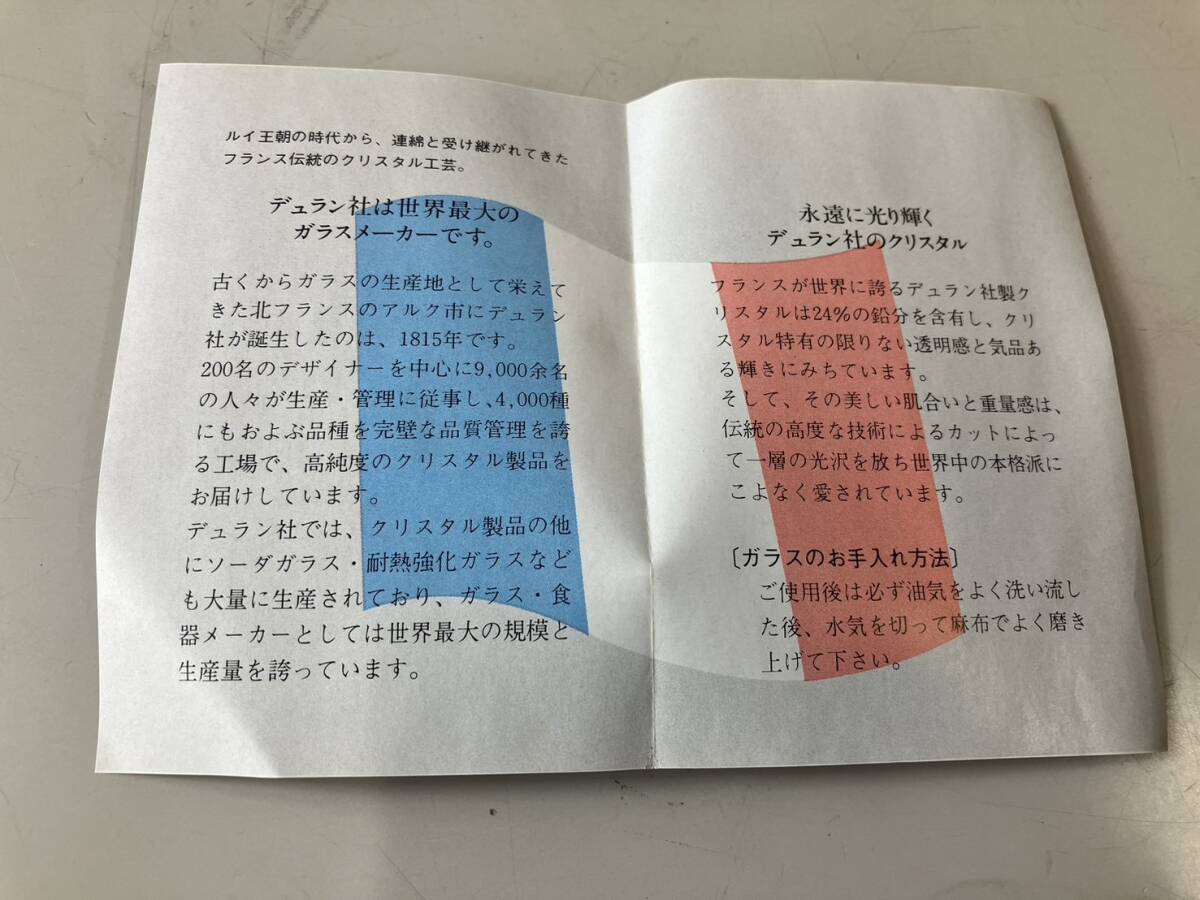 ルイ王朝の時代から、連綿と受け継がれてきた
フランス伝統のクリスタル工芸。
デュラン社は世界最大の
ガラスメーカーです。
古くからガラスの生産地として栄えて
きた北フランスのアルク市にデュラン
社が誕生したのは、1815年です。
200名のデザイナーを中心に9,000余名
の人々が生産・管理に従事し、4,000種
にもおよぶ品種を完璧な品質管理を誇
る工場で、高純度のクリスタル製品を
お届けしています。
デュラン社では、クリスタル製品の他
にソーダガラス・耐熱強化ガラスなど
も大量に生産されており、ガラス・食
器メーカーとしては世界最大の規模と
生産量を誇っています。
永遠に光り輝く
デュラン社のクリスタル
フランスが世界に誇るデュラン社製ク
リスタルは24%の鉛分を含有し、クリ
スタル特有の限りない透明感と気品あ
る輝きにみちています。
そして、その美しい肌合いと重量感は、
伝統の高度な技術によるカットによっ
て一層の光沢を放ち世界中の本格派に
こよなく愛されています。
〔ガラスのお手入れ方法〕
ご使用後は必ず油気をよく洗い流し
た後、水気を切って麻布でよく磨き
上げて下さい。